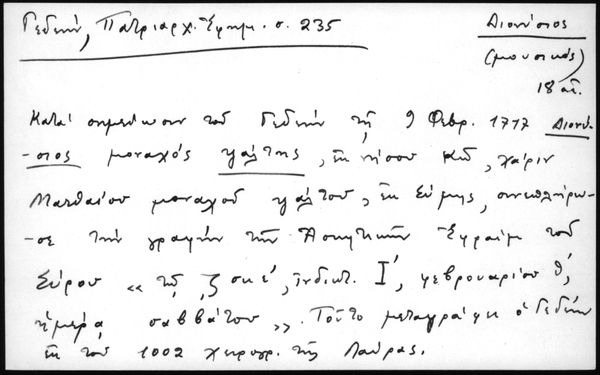 Γεδεών, Πατριαρχ. Ἐφημ. σ. 235
Διονύσιος
(μουσικός)
18 αἰ.
Κατά σημείωσιν τοῦ Γεδεών τῇ 9 Φεβρ. 1717 Διονύ-
-σιος μοναχός ψάλτης, ἐκ νήσου Κῶ, χάριν
Ματθαίου μοναχοῦ ψάλτου, ἐκ Σύμης, συνεπλήρω-
-σε τήν γραφήν τῶν Ἀσκητικῶν Ἐφραίμ τοῦ
Σύρου « τῷ ζσκε', ἰνδικτ. Ι', φεβρουαρίου θ',
ἡμέρᾳ σαββάτου ». Τοῦτο μεταγράφει ὁ Γεδεών
ἐκ τοῦ 1002 χειρογρ. τῆς Λαύρας.